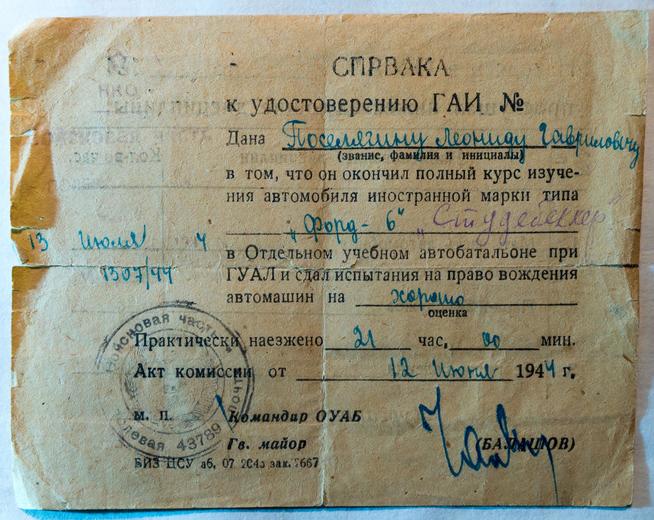 СПРВАКА
к удостоверению ГАИ №
Дана Поселягину Леониду Гавриловичу
(звание, фамилия и инициалы)
в том, что он окончил полный курс изуче-
ния автомобиля иностранной марки типа
„Форд-6“ „Студебеккер“
13 Июля 4
в Отдельном учебном автобатальоне при
1307/44
ГУАЛ и сдал испытания на право вождения
автомашин на хорошо
оценка
Практически наезжено 21 час, 00 мин.
Акт комиссии от 12 Июня 1944 г.
Войсковая часть
Полевая почта 43789
м. п. Командир ОУАБ
Гв. майор (БАЛАШОВ)
БИЗ ЦСУ зак. 7667